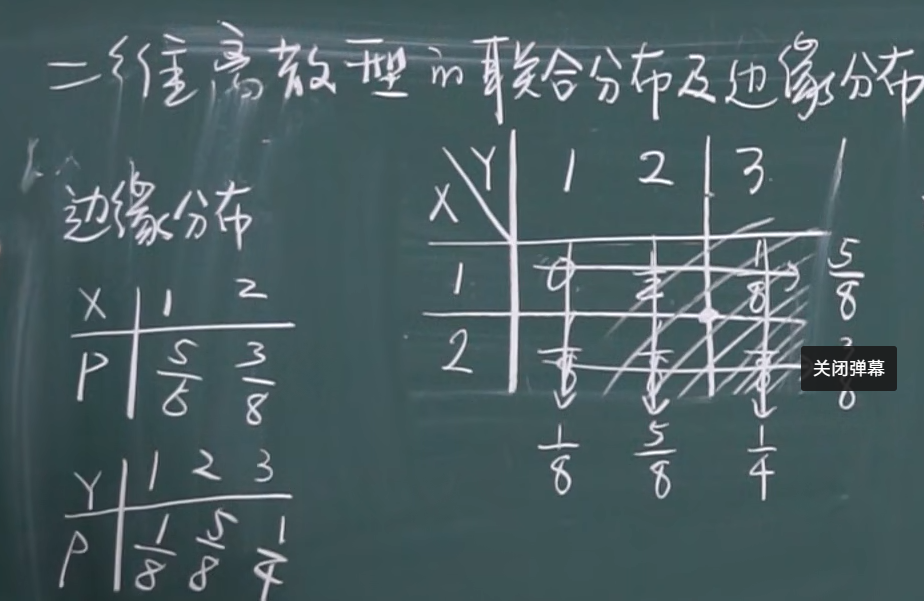 二维离散型的联合分布及边缘分布
边缘分布
X 1 2
P 5/8 3/8
Y 1 2 3
P 1/8 5/8 1/4
X Y 1 2 3
1 1/8 5/8
2
1/8 5/8 1/4
关闭弹幕